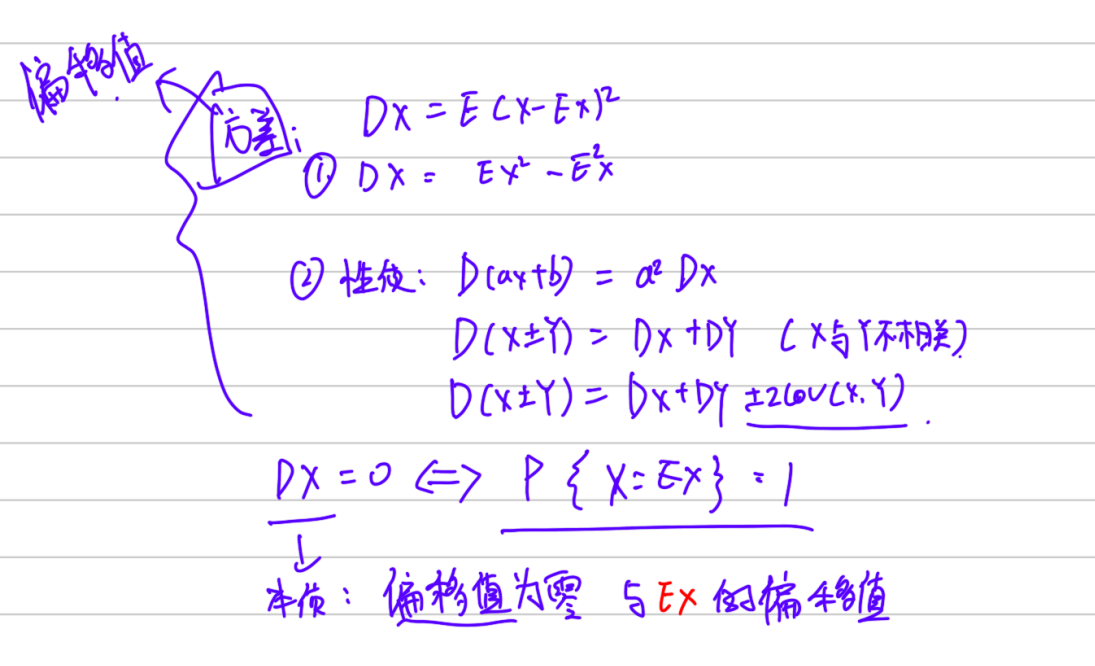 偏移值
方差:
DX = E(X-EX)²
① DX = EX² - E²X
② 性质: D(aX+b) = a² DX
D(X±Y) = DX+DY (X与Y不相关)
D(X±Y) = DX+DY ±2COV(X,Y).
DX = 0 <=> P{X=EX} = 1
↓
本质: 偏移值为零 与EX的偏移值